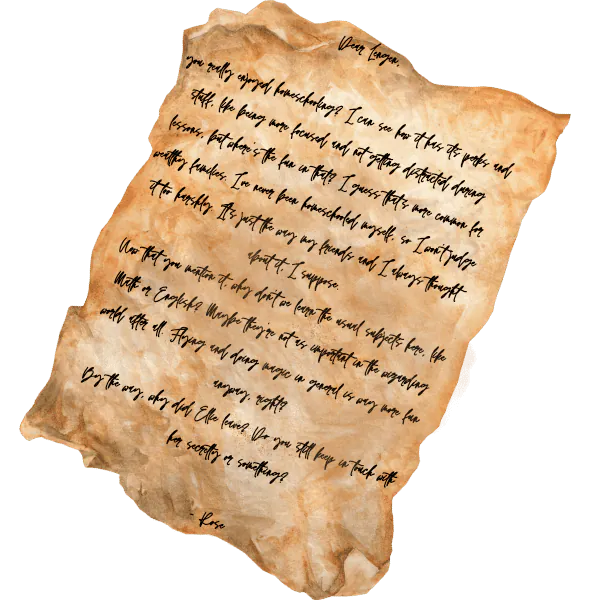 Dear Lengen,
you really enjoyed homeschooling? I can see how it has it's perks and
stuff, like being more focused and not getting distracted during
lessons, but where's the fun in that? I guess that's more common for
wealthy families, I've never been homeschooled myself, so I won't judge
it too harshly. It's just the way my friends and I always thought
about it, I suppose.
Now that you mention it, why don't we learn the usual subjects here, like
Math or English? Maybe they're not as important in the wizarding
world after all. Flying and doing magic in general is way more fun
anyway, right?
By the way, why did Ellie leave? Do you still keep in touch with
her secretly or something?
- Rose